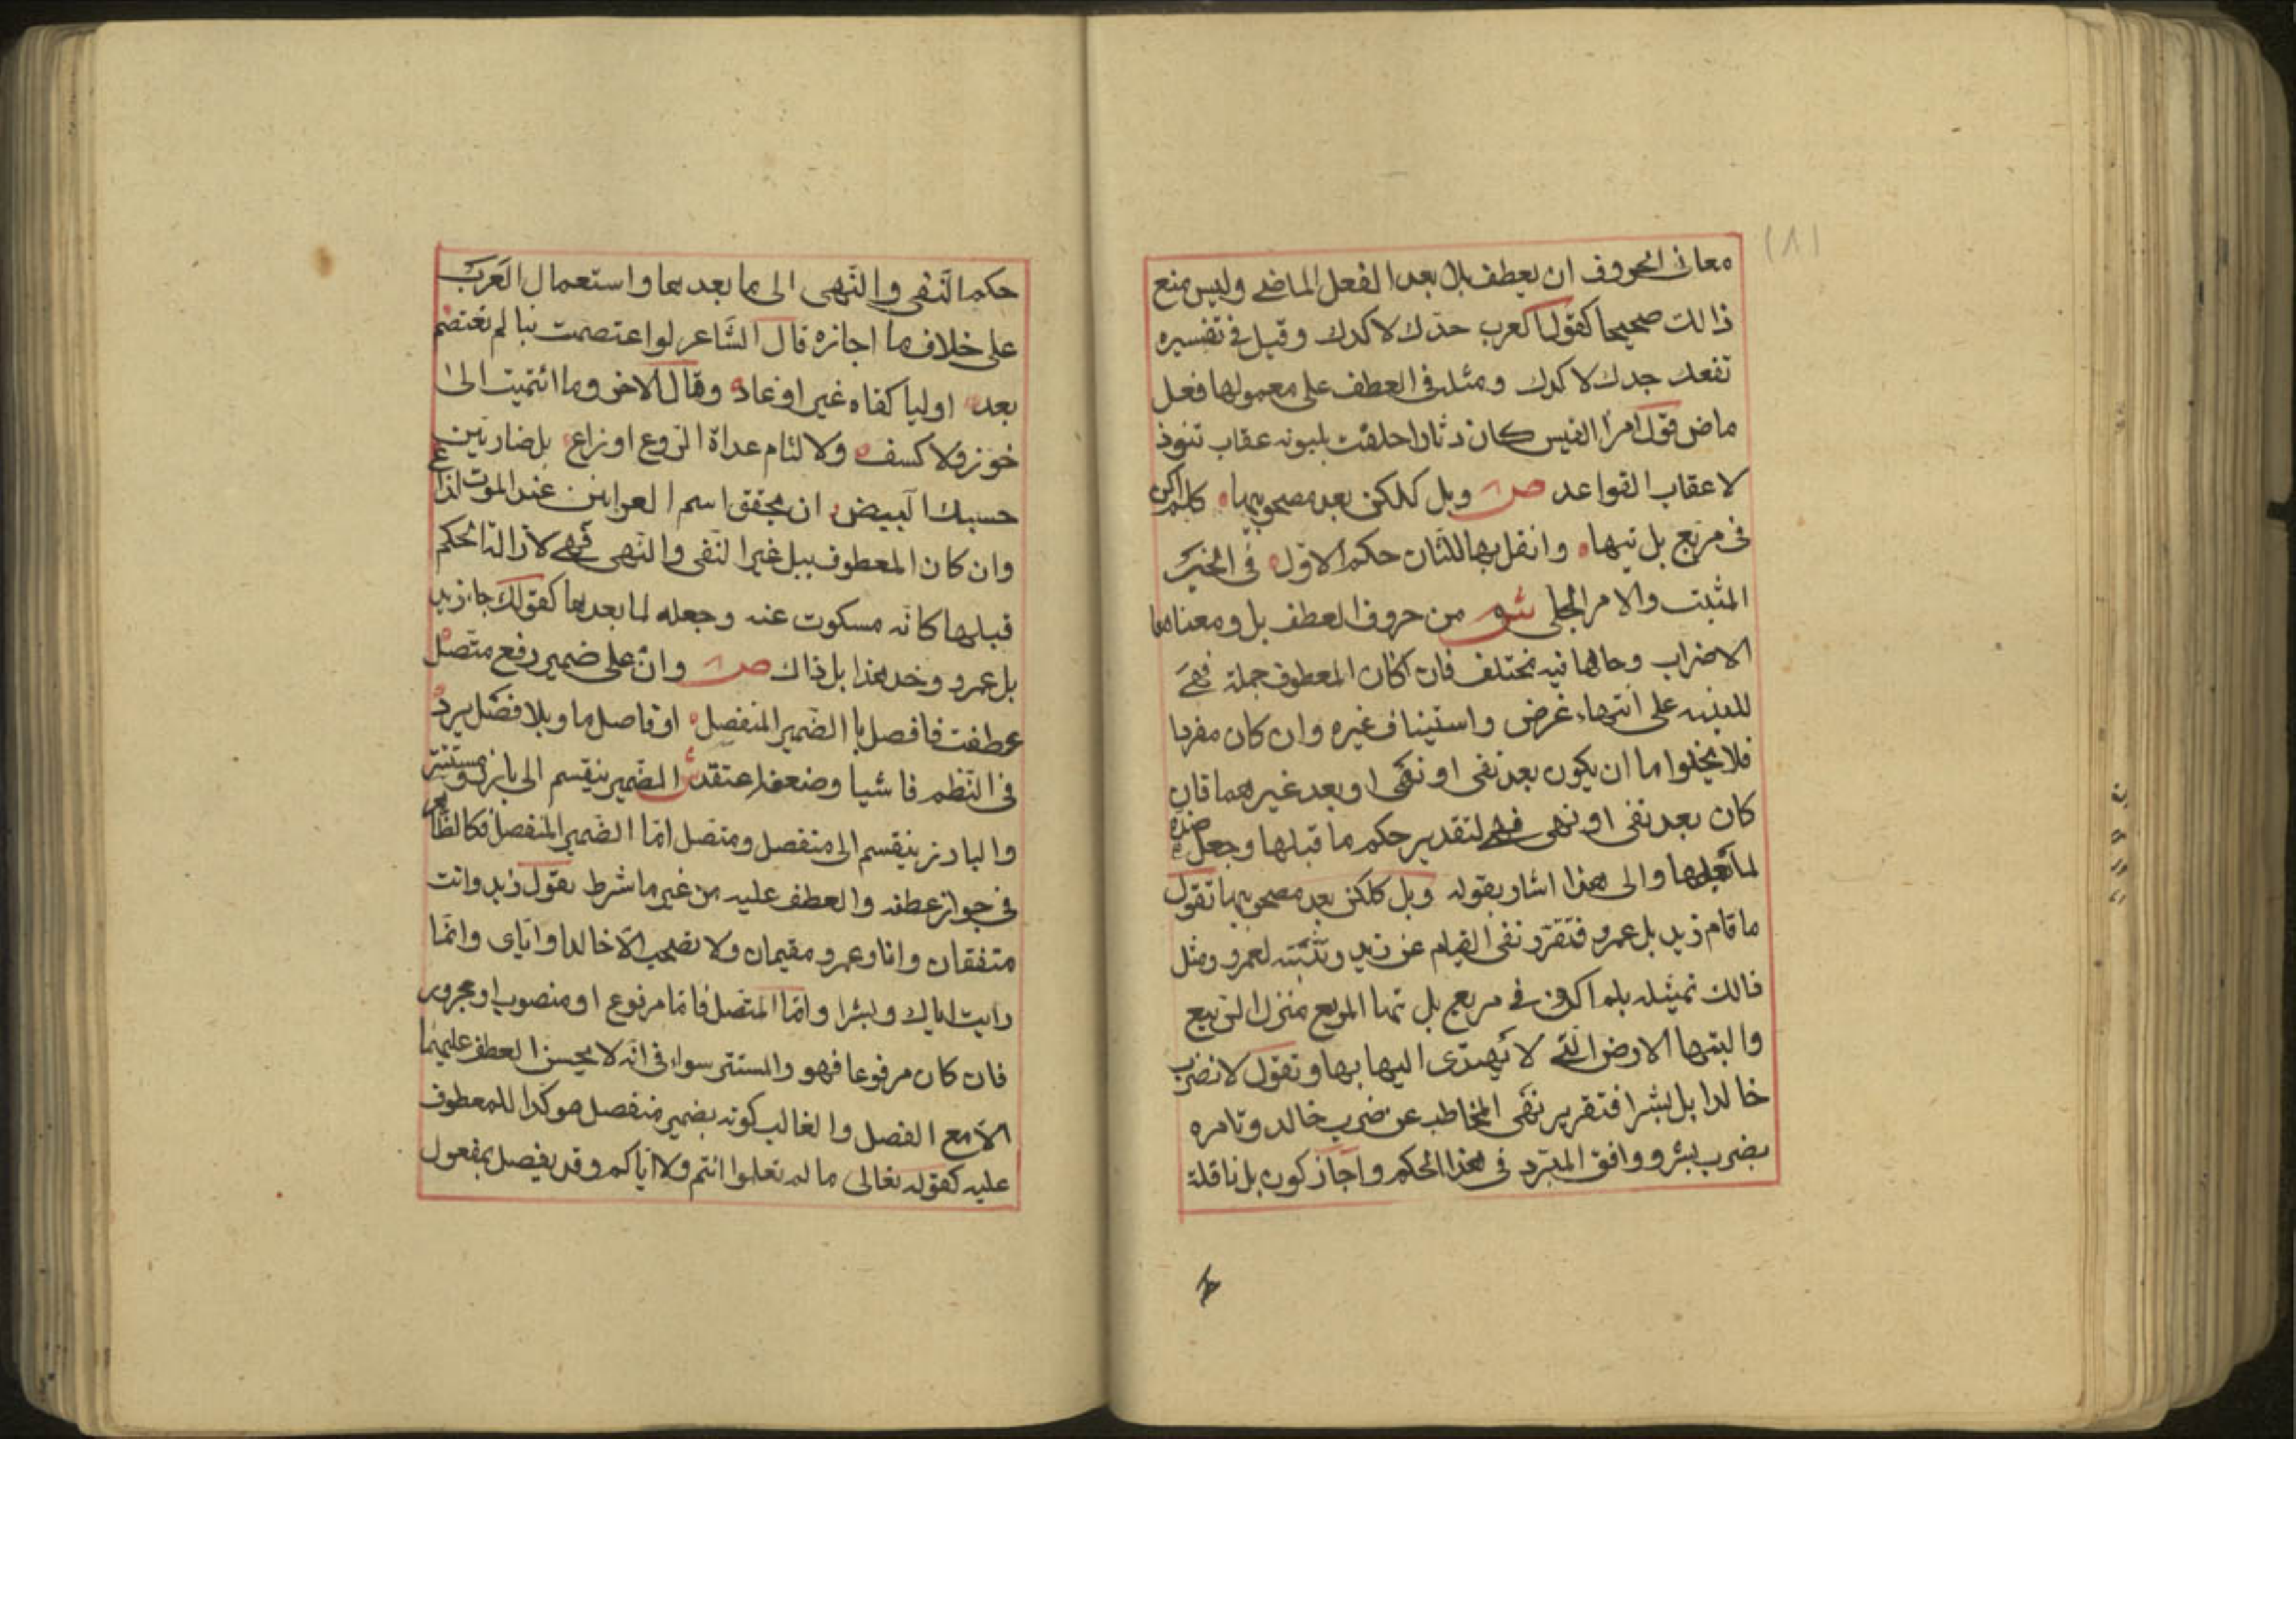 ١٨١
معاني الحروف ان يعطف بلا بعد الفعل الماضي وليس منع
ذالك صحيحا كقول العرب جدك لا كدك وقيل في تفسيره
تفعك جدك لا كدك ومثله في العطف على معمولها فعل
ماض قول امرأ القيس كان دثارا حلقت بلبونه عقاب تنوف
لا عقاب القواعد ص وبل كلكن بعد مصحوبيها كلم اكن
في مربع بل تيها وانقل بها للثان حكم الاول في الخبر
المثبت والامر الجلي ش من حروف العطف بل ومعناها
الاضراب وحالها فيه مختلف فان كان المعطوف جملة فهي
للتنبيه على انتهاء غرض واستيناف غيره وان كان مفردا
فلا يخلوا ما ان يكون بعد نفي او نهي او بعد غيرهما فان
كان بعد نفي او نهى فهي لتقدير حكم ما قبلها وجعل ضده
لما بعدها والى هذا اشار بقوله وبل كلكن بعد مصحوبيها تقول
ما قام زيد بل عمرو فتقرر نفي القيام عن زيد وتثبته لعمرو ومثل
ذالك تمثيله بلم اكن في مربع بل تيها المربع منزل الربيع
والتيها الارض التي لا يهتدى اليها بها وتقول لا تضرب
خالدا بل بشرا فتقرير نهى المخاطب عن ضرب خالد وتامره
بضرب بشر ووافق المبرد في هذا الحكم واجاز كون بل ناقلة
حكم النفي والنهى الى ما بعدها واستعمال العرب
على خلاف ما اجازه قال الشاعر لو اعتصمت بنا لم تعتصم
بعد اوليا كفاه غير اوغاد وقال الاخر وما انتميت الى
خور ولا كسف ولا لئام غداة الروع اوزاع بل ضاربين
حبيك البيض ان لحقوا شم العرانين عند الموت لذاع
وان كان المعطوف ببل غير النفى والنهى فهي لازالة الحكم
قبلها كانه مسكوت عنه وجعله لما بعدها كقولك جاء زيد
بل عمرو وخذ هذا بل ذاك ص وان على ضمير رفع متصل
عطفت فافصل بالضمير المنفصل او فاصل ما وبلا فصل يرد
في النظم فاشيا وضعفه اعتقد ش الضمير ينقسم الى بارز ومستتر
والبارز ينقسم الى منفصل ومتصل امّا الضمير المنفصل فكالظاهر
في جواز عطفه والعطف عليه من غير ما شرط تقول زيد وانت
متفقان وانا وعمرو مقيمان ولا تصحب الا خالدا واياي وانما
رايت اياك وبشرا وامّا المتصل فامّا مرفوع او منصوب او مجرور
فان كان مرفوعا فهو والمستتر سواء في انه لا يحسن العطف عليهما
الا مع الفصل والغالب كونه بضمير منفصل موكدا للمعطوف
عليه كقوله تعالى ما لم تعلموا انتم ولا اباكم وقد يفصل بمفعول